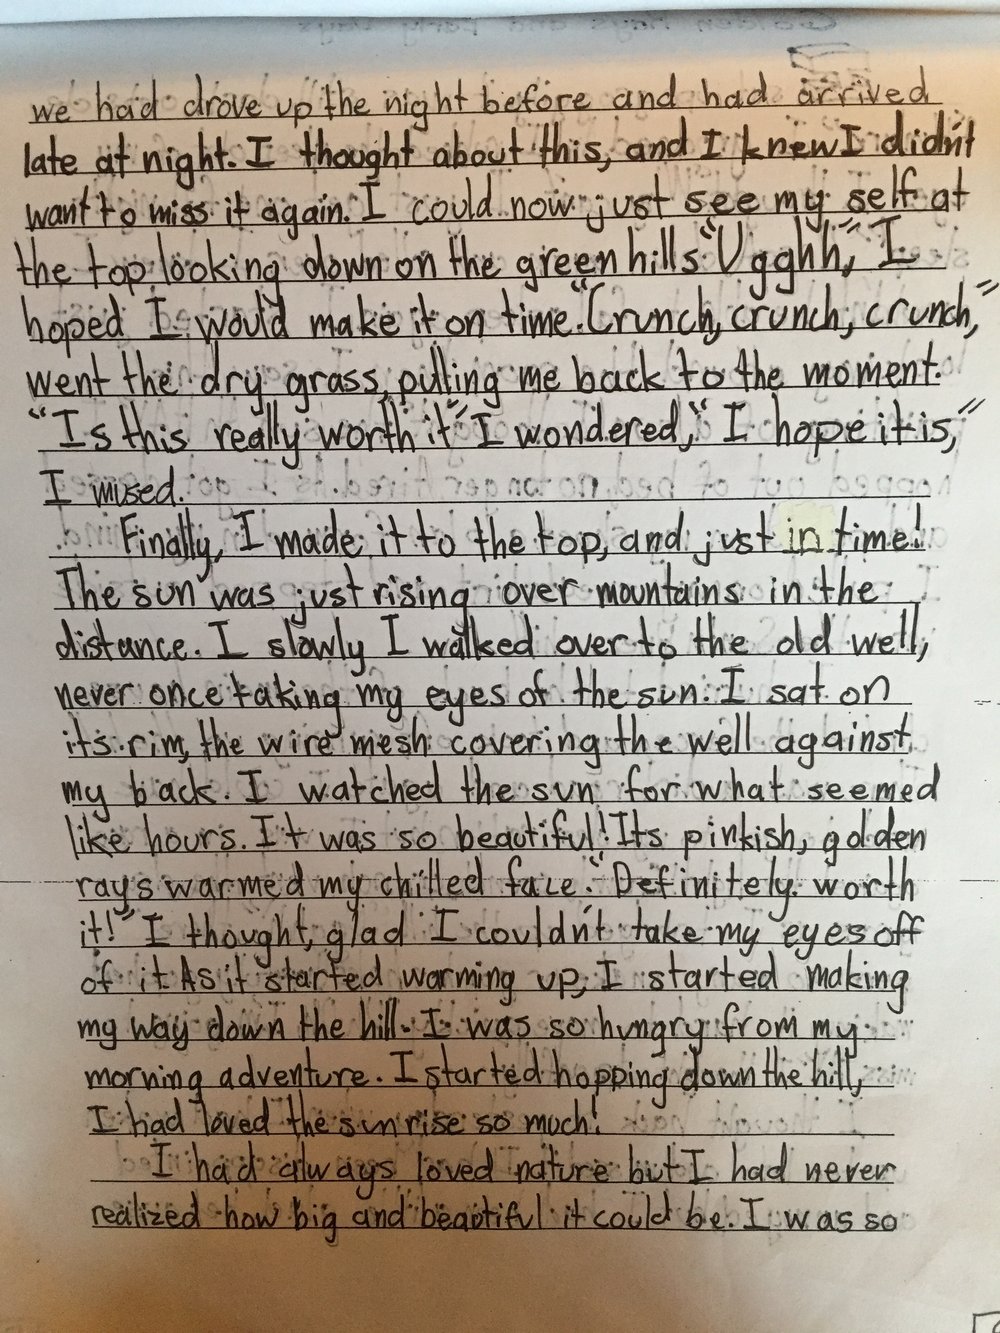 we had drove up the night before and had arrived
late at night. I thought about this, and I knew I didn't
want to miss it again. I could now just see my self at
the top looking down on the green hills "Ugghh," I
hoped I would make it on time. "Crunch, crunch, crunch,"
went the dry grass, pulling me back to the moment.
"Is this really worth it" I wondered, "I hope it is,"
I mused.
Finally, I made it to the top, and just in time!
The sun was just rising over mountains in the
distance. I slowly I walked over to the old well,
never once taking my eyes of the sun. I sat on
its rim, the wire mesh covering the well against
my back. I watched the sun for what seemed
like hours. It was so beautiful! Its pinkish, golden
rays warmed my chilled face. "Definitely worth
it!" I thought, glad I couldn't take my eyes off
of it As it started warming up, I started making
my way down the hill. I was so hungry from my
morning adventure. I started hopping down the hill,
I had loved the sunrise so much!
I had always loved nature but I had never
realized how big and beautiful it could be. I was so